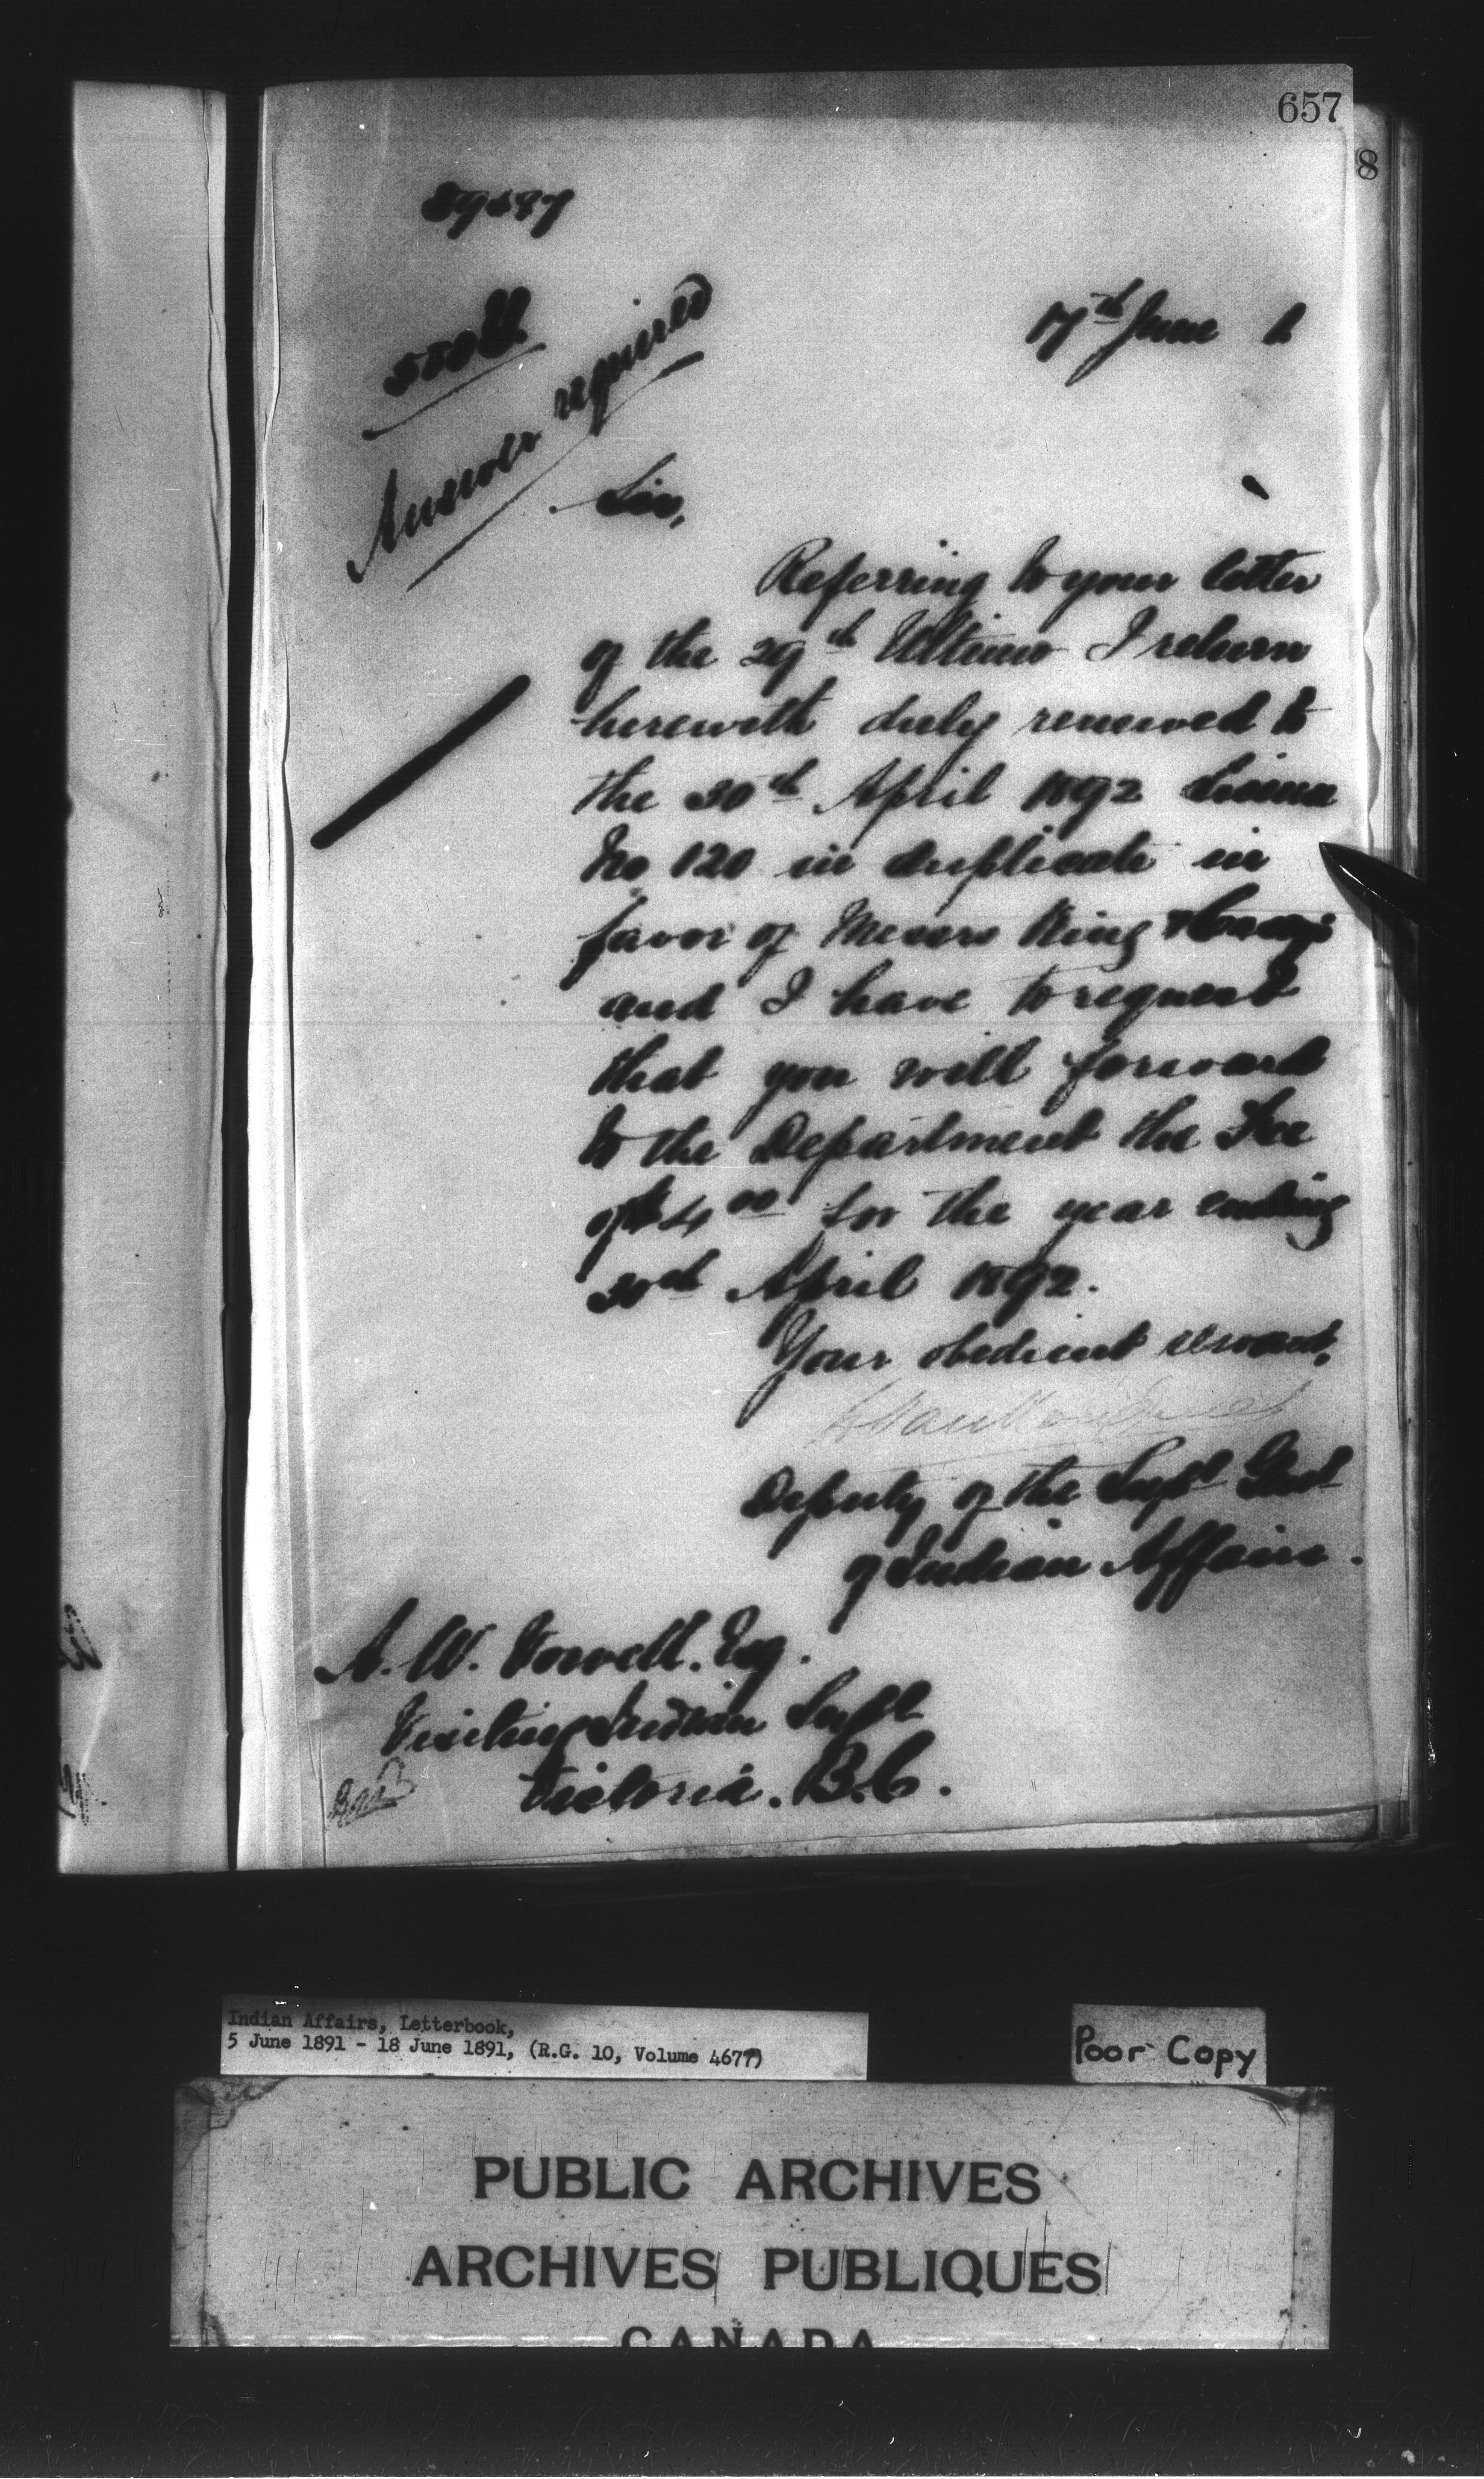 657
8
Answer required
17th June 1
Sir,
Referring to your letter
of the 29th Ultimo I return
herewith duly renewed to
the 30th April 1892 License
No 120 in duplicate in
favor of Messrs King &
and I have to request
that you will forward
to the Department the Fee
of $4 00 for the year ending
30th April 1892.
Your obedient servant,
Deputy of the Supt Genl
of Indian Affairs.
A. W. Vowell. Esq.
Visiting Indian Supt
Victoria. B.C.
Indian Affairs, Letterbook,
5 June 1891 - 18 June 1891, (R.G. 10, Volume 4677)
Poor Copy
PUBLIC ARCHIVES
ARCHIVES PUBLIQUES
CANADA